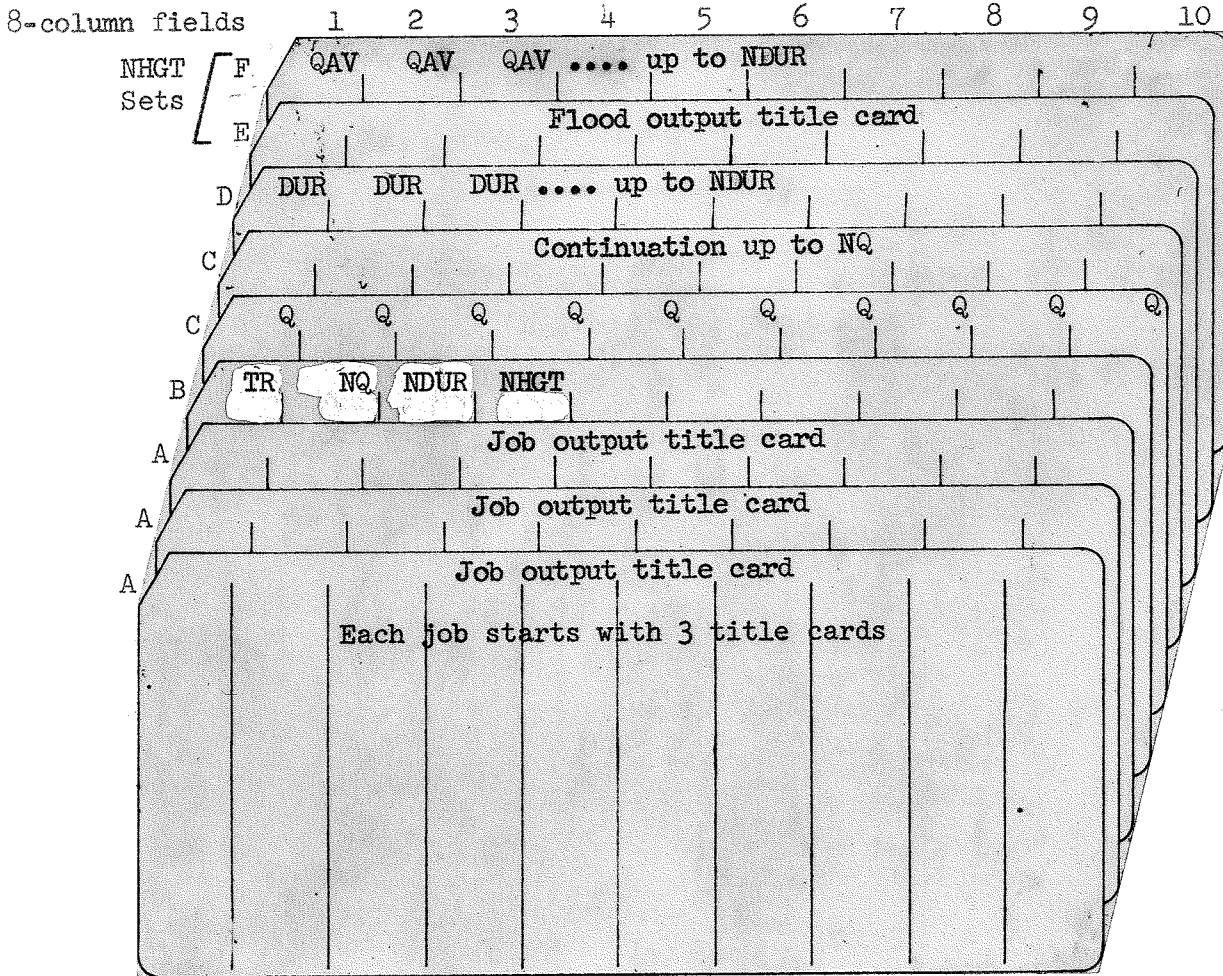 8-column fields 1 2 3 4 5 6 7 8 9 10
NHGT Sets F QAV QAV QAV .... up to NDUR
E Flood output title card
D DUR DUR DUR .... up to NDUR
C Continuation up to NQ
C Q Q Q Q Q Q Q Q Q Q
B TR NQ NDUR NHGT
A Job output title card
A Job output title card
A Job output title card
Each job starts with 3 title cards